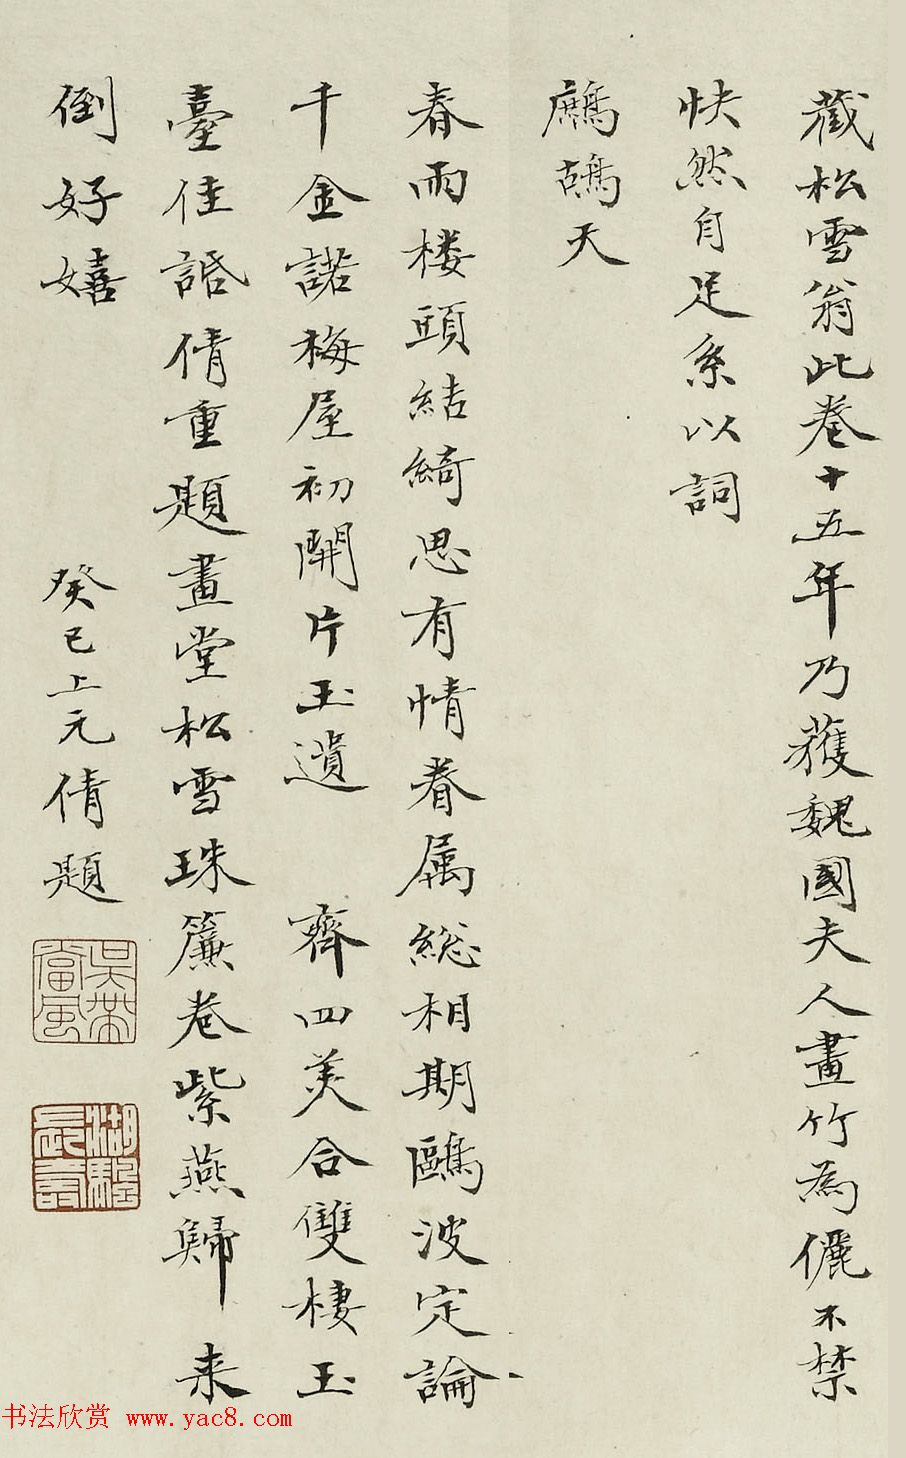 藏松雪翁此卷十五年乃獲魏國夫人畫竹為儷不禁
快然自足系以詞
鷓鴣天
春雨楼頭結綺思有情眷属総相期鷗波定論
千金諾梅屋初開片玉遺 齊四美合雙棲玉
臺佳話倩重題畫堂松雪珠簾卷紫燕歸来
倒好嬉
癸巳上元倩題
吳帶當風
湖颿長壽
书法欣赏 www.yac8.com